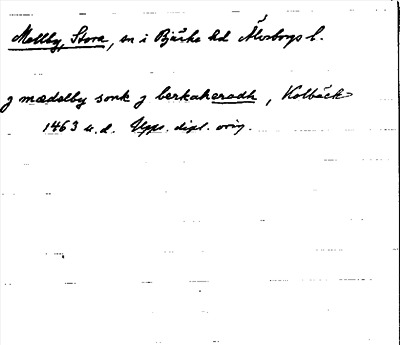 Mellby, Stora, en i Bjärke hd Älvsborgs l.
J mædalby sonk J berkakeradh, Kolbäck
1463 u.d. Upps. dipl. orig.